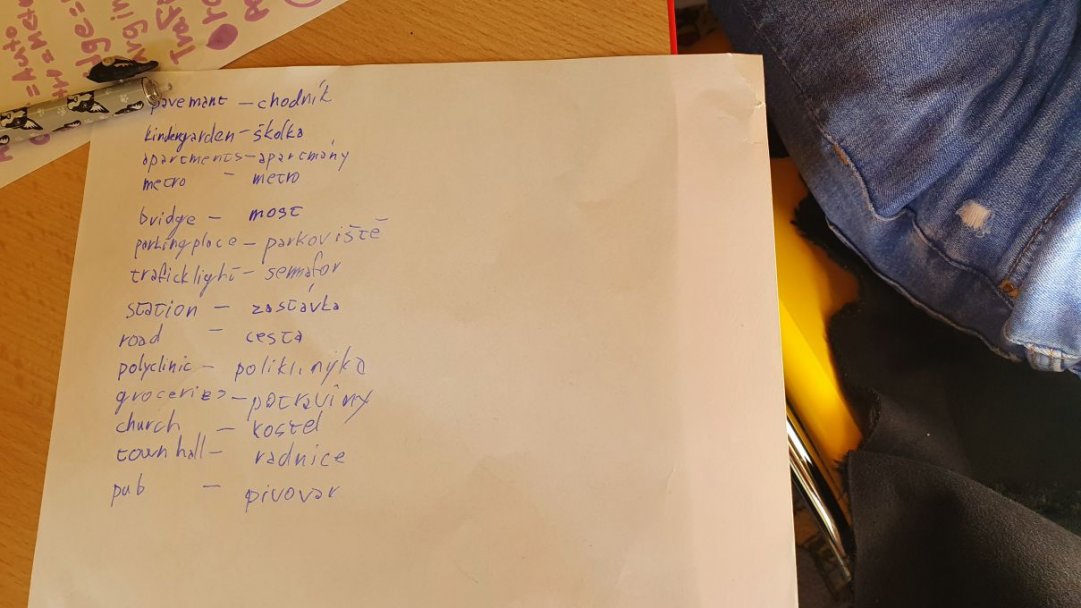 pavemant – chodník
kindergarden – školka
apartments – apartmány
metro – metro
bridge – most
parking place – parkoviště
traficklight – semafor
station – zastávka
road – cesta
polyclinic – poliklinyka
groceries – potraviny
church – kostel
town hall – radnice
pub – pivovar
= Auto